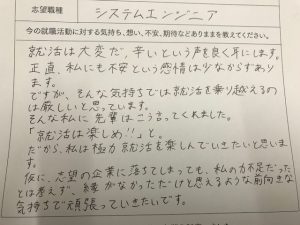 志望職種
システムエンジニア
今の就職活動に対する気持ち、想い、不安、期待などありのままを教えてください。
就活は大変だ、辛いという声を良く耳にします。
正直、私にも不安という感情は少なからずあり
ます。
ですが、そんな気持ちでは就活を乗り越えるの
は厳しいと思っています。
そんな私に先輩はこう言ってくれました。
「就活は楽しめ!!」と。
だから、私は極力就活を楽しんでいきたいと思いま
す。
仮に、志望の企業に落ちてしまっても、私の力不足だった
とは考えず、縁がなかっただけと思えるような前向きな
気持ちで頑張っていきたいです。